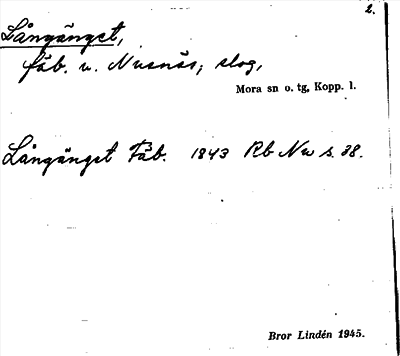 2.
Långänget,
fäb. u. Nusnäs; slog,
Mora sn o. tg, Kopp. l.
Långänget Fäb. 1843 Rb Nu s. 38.
Bror Lindén 1945.